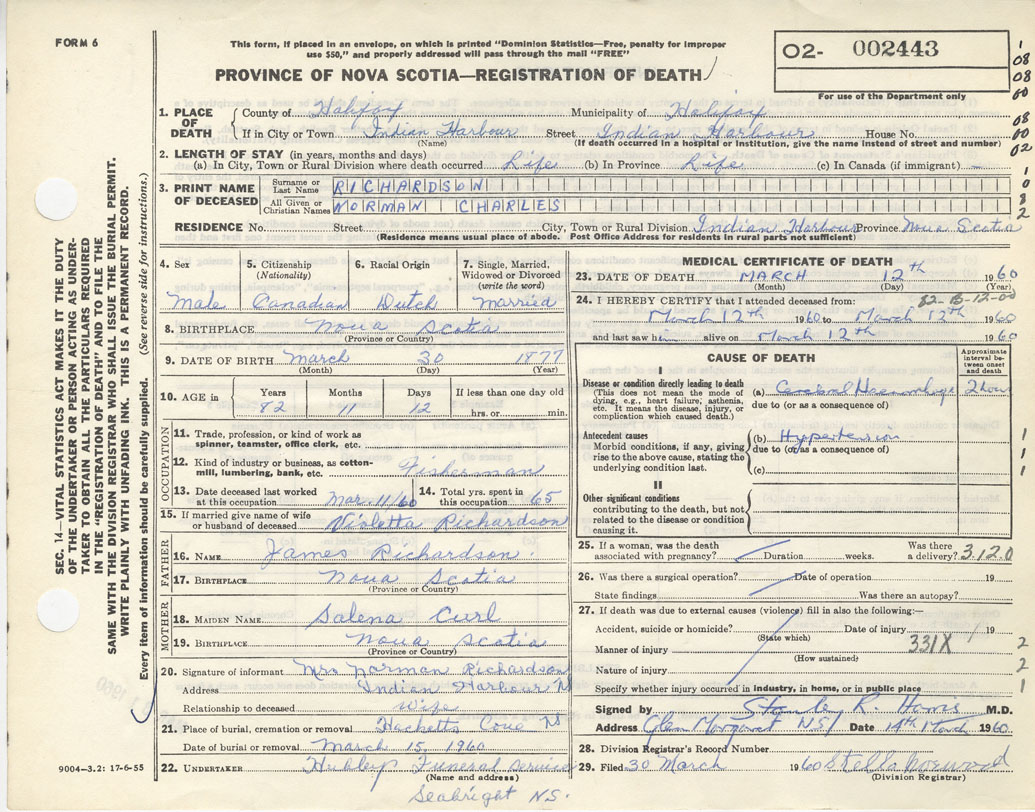 FORM 6
This form, if placed in an envelope, on which is printed "Dominion Statistics—Free, penalty for improper
use $50," and properly addressed will pass through the mail "FREE"
PROVINCE OF NOVA SCOTIA—REGISTRATION OF DEATH
02- 002443
For use of the Department only
1. PLACE OF DEATH
County of Halifax Municipality of Halifax
If in City or Town Indian Harbour Street Indian Harbour House No.
(Name) (If death occurred in a hospital or institution, give the name instead of street and number)
2. LENGTH OF STAY (in years, months and days)
(a) In City, Town or Rural Division where death occurred Life (b) In Province Life (c) In Canada (if immigrant) —
3. PRINT NAME OF DECEASED
Surname or Last Name RICHARDSON
All Given or Christian Names NORMAN CHARLES
RESIDENCE No. Street City, Town or Rural Division Indian Harbour Province Nova Scotia
(Residence means usual place of abode. Post Office Address for residents in rural parts not sufficient)
4. Sex Male
5. Citizenship (Nationality) Canadian
6. Racial Origin Dutch
7. Single, Married, Widowed or Divorced (write the word) Married
8. BIRTHPLACE Nova Scotia
(Province or Country)
9. DATE OF BIRTH March 30 1877
(Month) (Day) (Year)
10. AGE in Years 82 Months 11 Days 12 If less than one day old hrs. or min.
OCCUPATION
11. Trade, profession, or kind of work as
spinner, teamster, office clerk.
12. Kind of industry or business, as cotton-
mill, lumbering, bank, etc. Fisherman
13. Date deceased last worked at this occupation Mar 11/60
14. Total yrs. spent in this occupation 65
15. If married give name of wife
or husband of deceased Violetta Richardson
FATHER
16. NAME James Richardson
17. BIRTHPLACE Nova Scotia
(Province or Country)
MOTHER
18. MAIDEN NAME Salena Curl
19. BIRTHPLACE Nova Scotia
(Province or Country)
20. Signature of informant Mrs Norman Richardson
Address Indian Harbour N
Relationship to deceased Wife
21. Place of burial, cremation or removal Hacketts Cove N
Date of burial or removal March 15, 1960
22. UNDERTAKER Hubley Funeral Service
(Name and address)
Seabright N.S.
MEDICAL CERTIFICATE OF DEATH
23. DATE OF DEATH MARCH 12th 1960
(Month) (Day) (Year)
82-B-12-00
24. I HEREBY CERTIFY that I attended deceased from:
March 12th 1960 to March 12th 1960
and last saw him alive on March 12th 1960
CAUSE OF DEATH
Approximate interval between onset and death
I
Disease or condition directly leading to death
(This does not mean the mode of
dying, e.g., heart failure, asthenia,
etc. It means the disease, injury, or
complication which caused death.)
(a) Cerebral Haemorrhage 2 hours
due to (or as a consequence of)
Antecedent causes
Morbid conditions, if any, giving
rise to the above cause, stating the
underlying condition last.
(b) Hypertension
due to (or as a consequence of)
(c)
II
Other significant conditions
contributing to the death, but not
related to the disease or condition
causing it.
25. If a woman, was the death
associated with pregnancy? Duration weeks. Was there a delivery? 3.12.0
26. Was there a surgical operation? Date of operation 19
State findings Was there an autopsy?
27. If death was due to external causes (violence) fill in also the following:—
Accident, suicide or homicide? Date of injury 19
(State which)
Manner of injury 331X
(How sustained)
Nature of injury
Specify whether injury occurred in industry, in home, or in public place
Signed by Stanley R. Harris M.D.
Address Glen Margaret N.S. Date 14th March 1960
28. Division Registrar's Record Number
29. Filed 30 March 1960
(Division Registrar)
SEC. 14—VITAL STATISTICS ACT MAKES IT THE DUTY
OF THE UNDERTAKER OR PERSON ACTING AS UNDER-
TAKER TO OBTAIN ALL THE PARTICULARS REQUIRED
IN THE "REGISTRATION OF DEATH" AND TO FILE THE
SAME WITH THE DIVISION REGISTRAR WHO SHALL ISSUE THE BURIAL PERMIT.
WRITE PLAINLY WITH UNFADING INK. THIS IS A PERMANENT RECORD.
Every item of information should be carefully supplied. (See reverse side for instructions.)
9004—3.2: 17-6-55
1
08
08
00
08
00
02
1
0
8
2
1
1
1
2
2
1